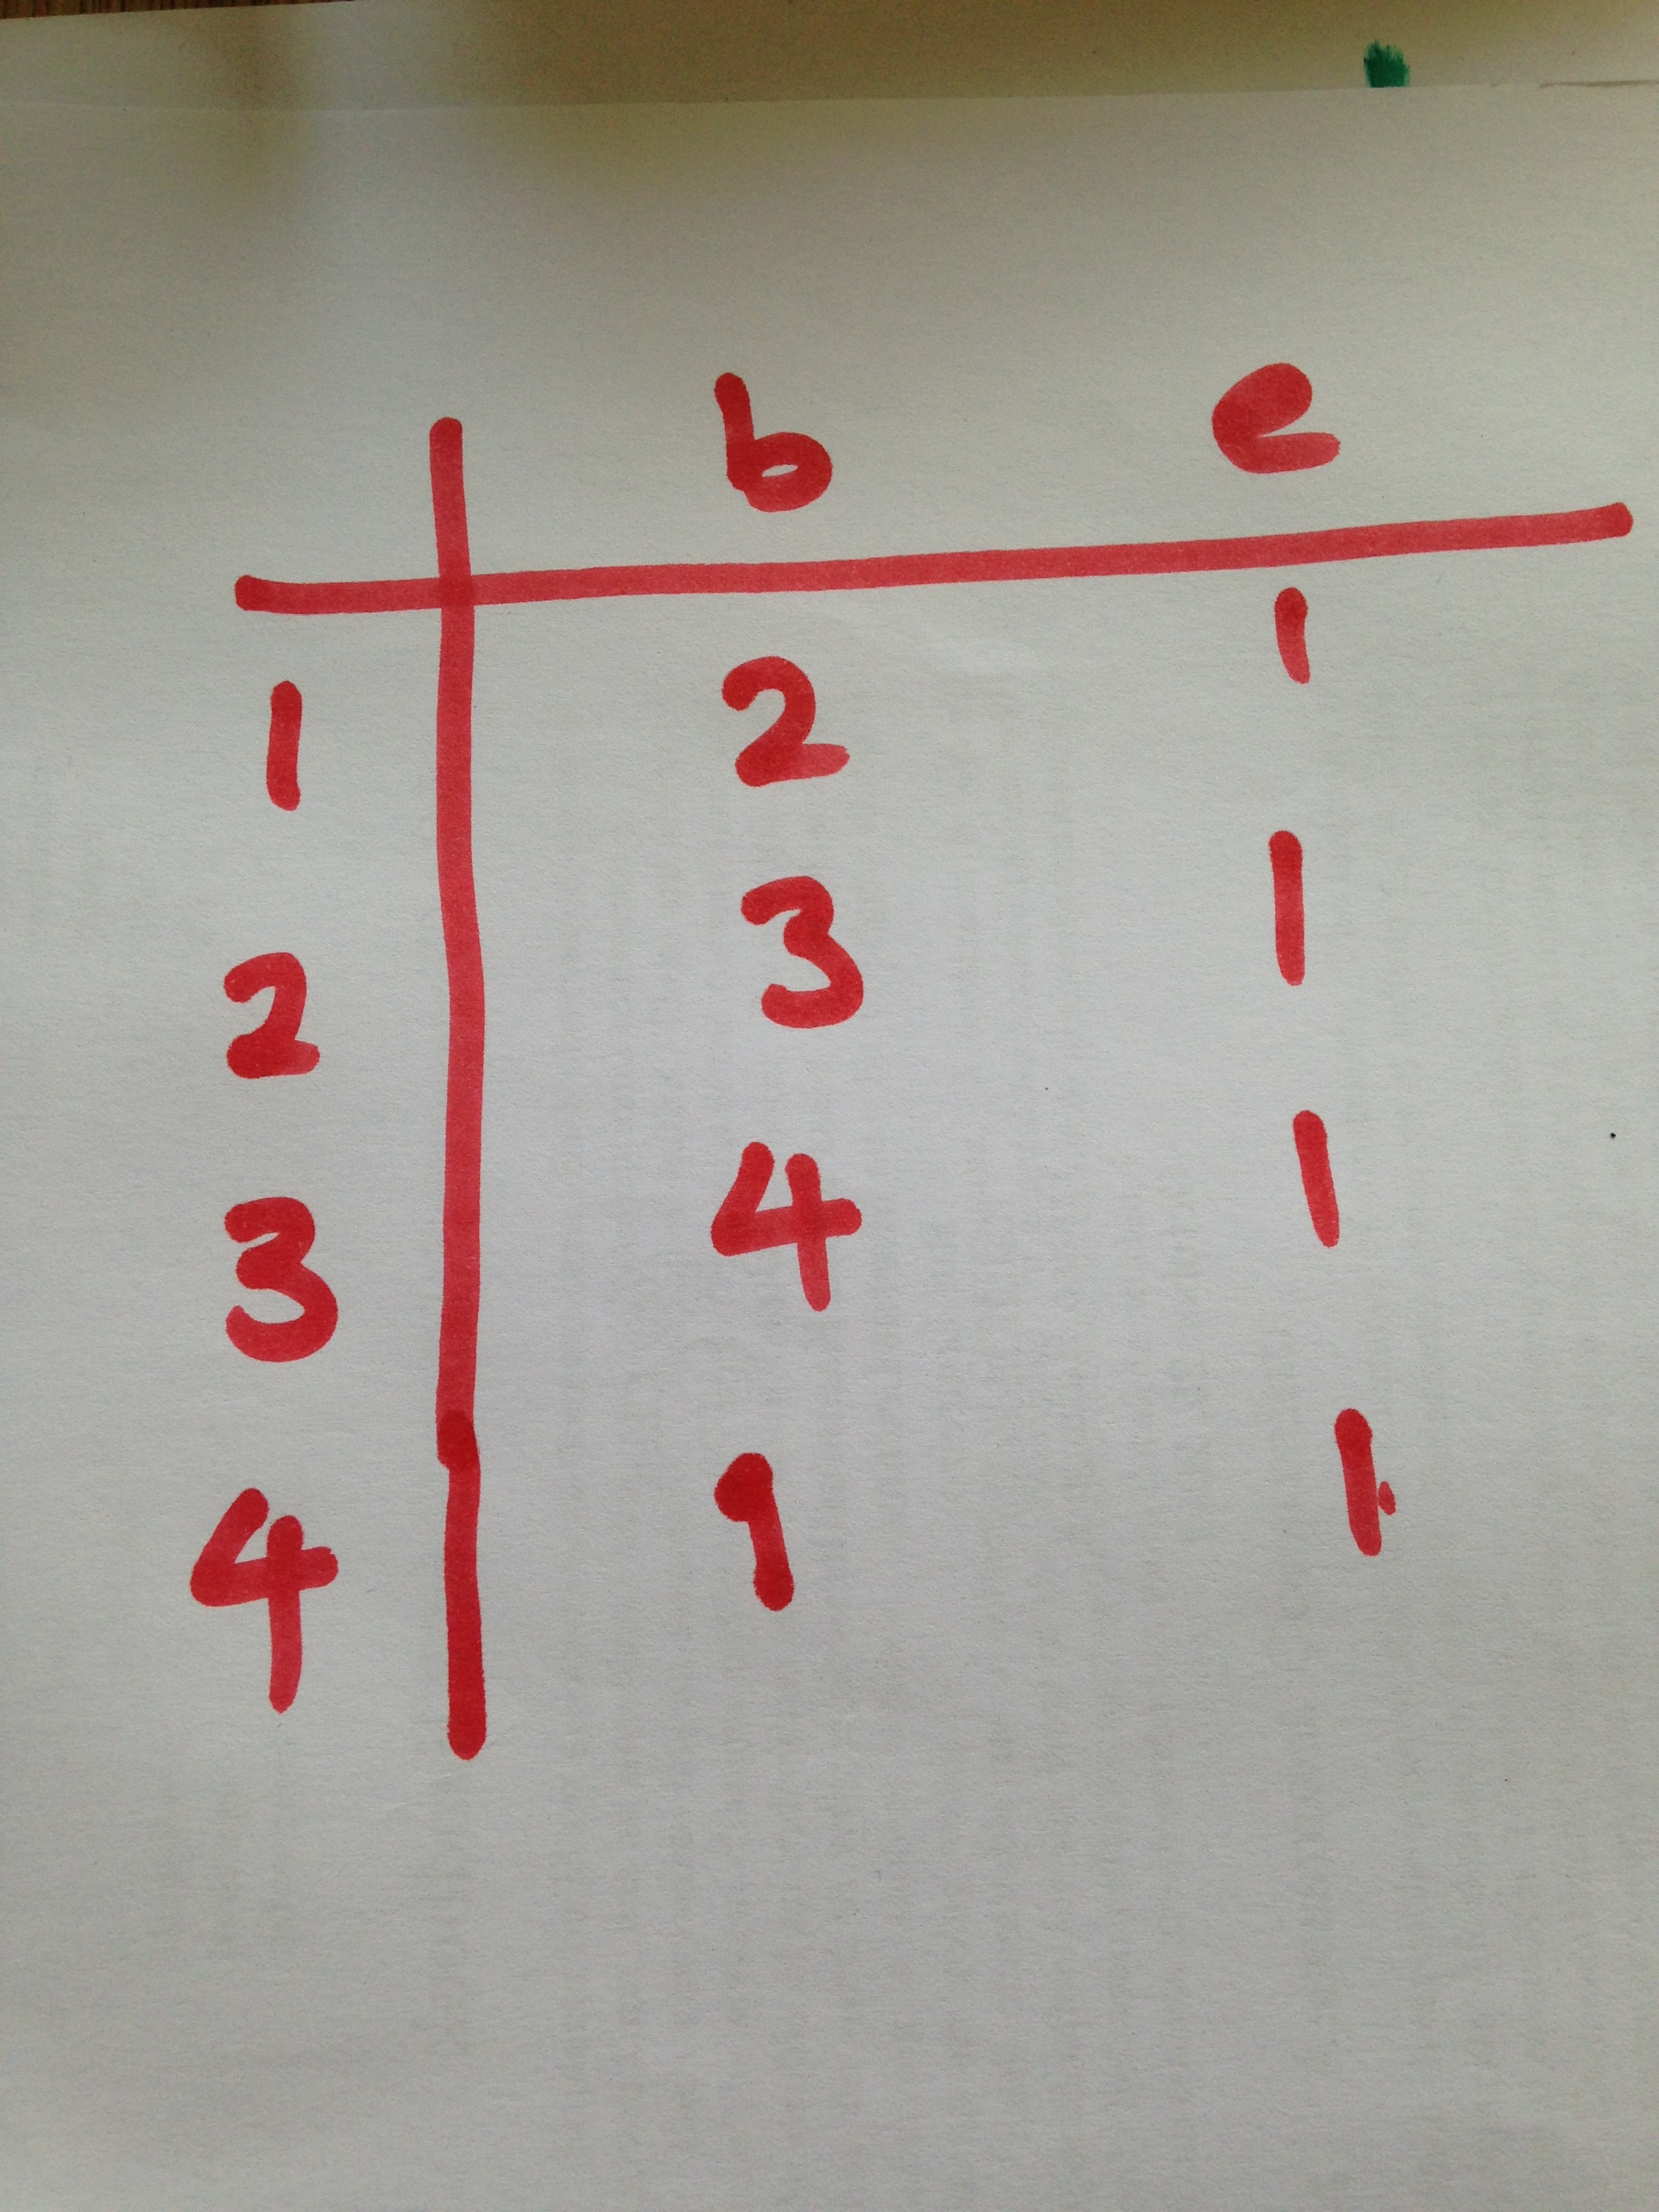 b e
1 2 1
2 3 1
3 4 1
4 1 1